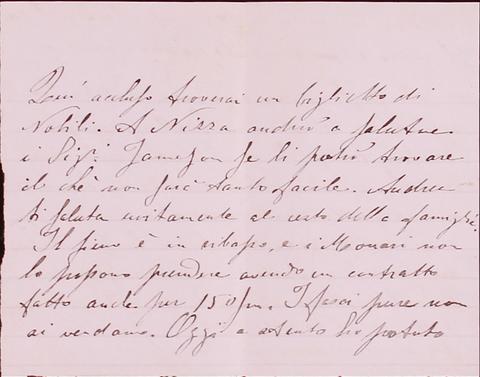 Quì accluso troverai un biglietto di
Nobili. A Nizza andrò a salutare
i Sigri Jameson se li potrò trovare
il chè non sarà tanto facile. Andrea
ti saluta unitamente al resto della famiglia.
Il fieno è in ribasso, e i Monari non
lo possono prendere avendo un contratto
fatto anche per 150/m. I fasci pure non
si vendono. Oggi a stento ho potuto